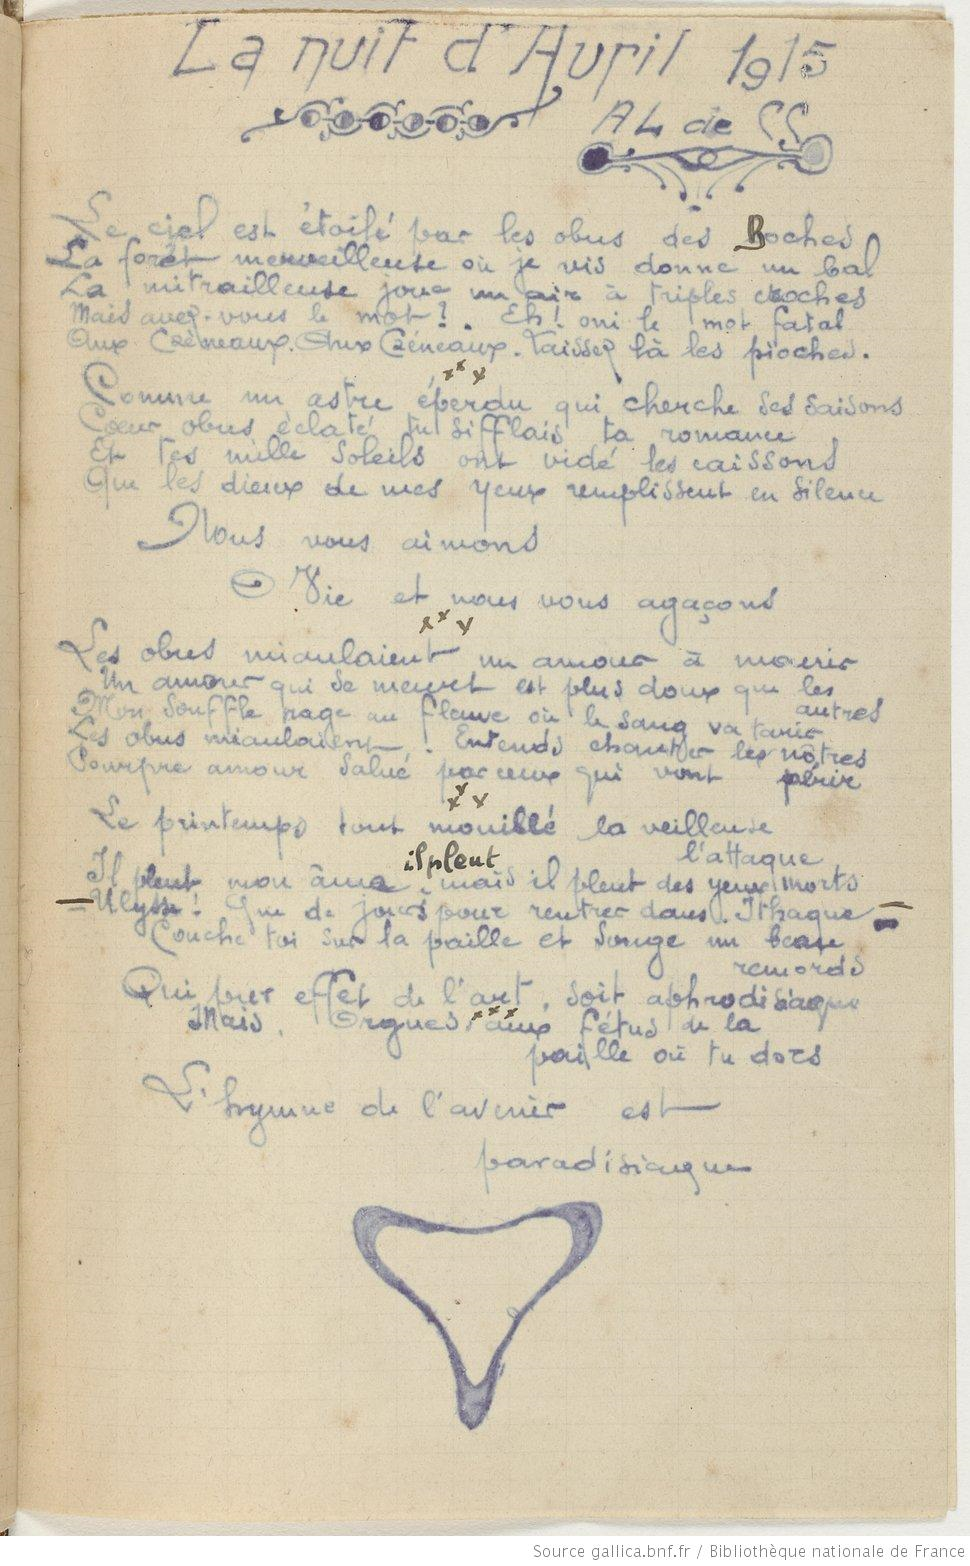 La nuit d'Avril 1915
A L. de C C
Le ciel est étoilé par les obus des Boches
La forêt merveilleuse où je vis donne un bal
La mitrailleuse joue un air à triples croches
Mais avez-vous le mot? . Eh! oui le mot fatal
Aux Créneaux. Aux Créneaux. Laissez là les pioches.
Comme un astre éperdu qui cherche ses saisons
Cœur obus éclaté tu sifflais ta romance
Et tes mille soleils ont vidé les caissons
Que les dieux de mes yeux remplissent en silence
Nous vous aimons
O Vie et nous vous agaçons
Les obus miaulaient un amour à mourir
Un amour qui se meurt est plus doux que les
autres
Mon souffle nage au fleuve où le sang va tarir
Les obus miaulaient . Entends chanter les nôtres
Pourpre amour salué par ceux qui vont périr
Le printemps tout mouillé la veilleuse
l'attaque
il pleut
Il pleut mon âme mais il pleut des yeux morts
Ulysse! Que de jours pour rentrer dans Ithaque
Couche toi sur la paille et songe un beau
remords
Qui pur effet de l'art. soit aphrodisiaque
Mais. Orgues aux fétus de la
paille où tu dors
L'hymne de l'avenir est
paradisiaque
Source gallica.bnf.fr / Bibliothèque nationale de France